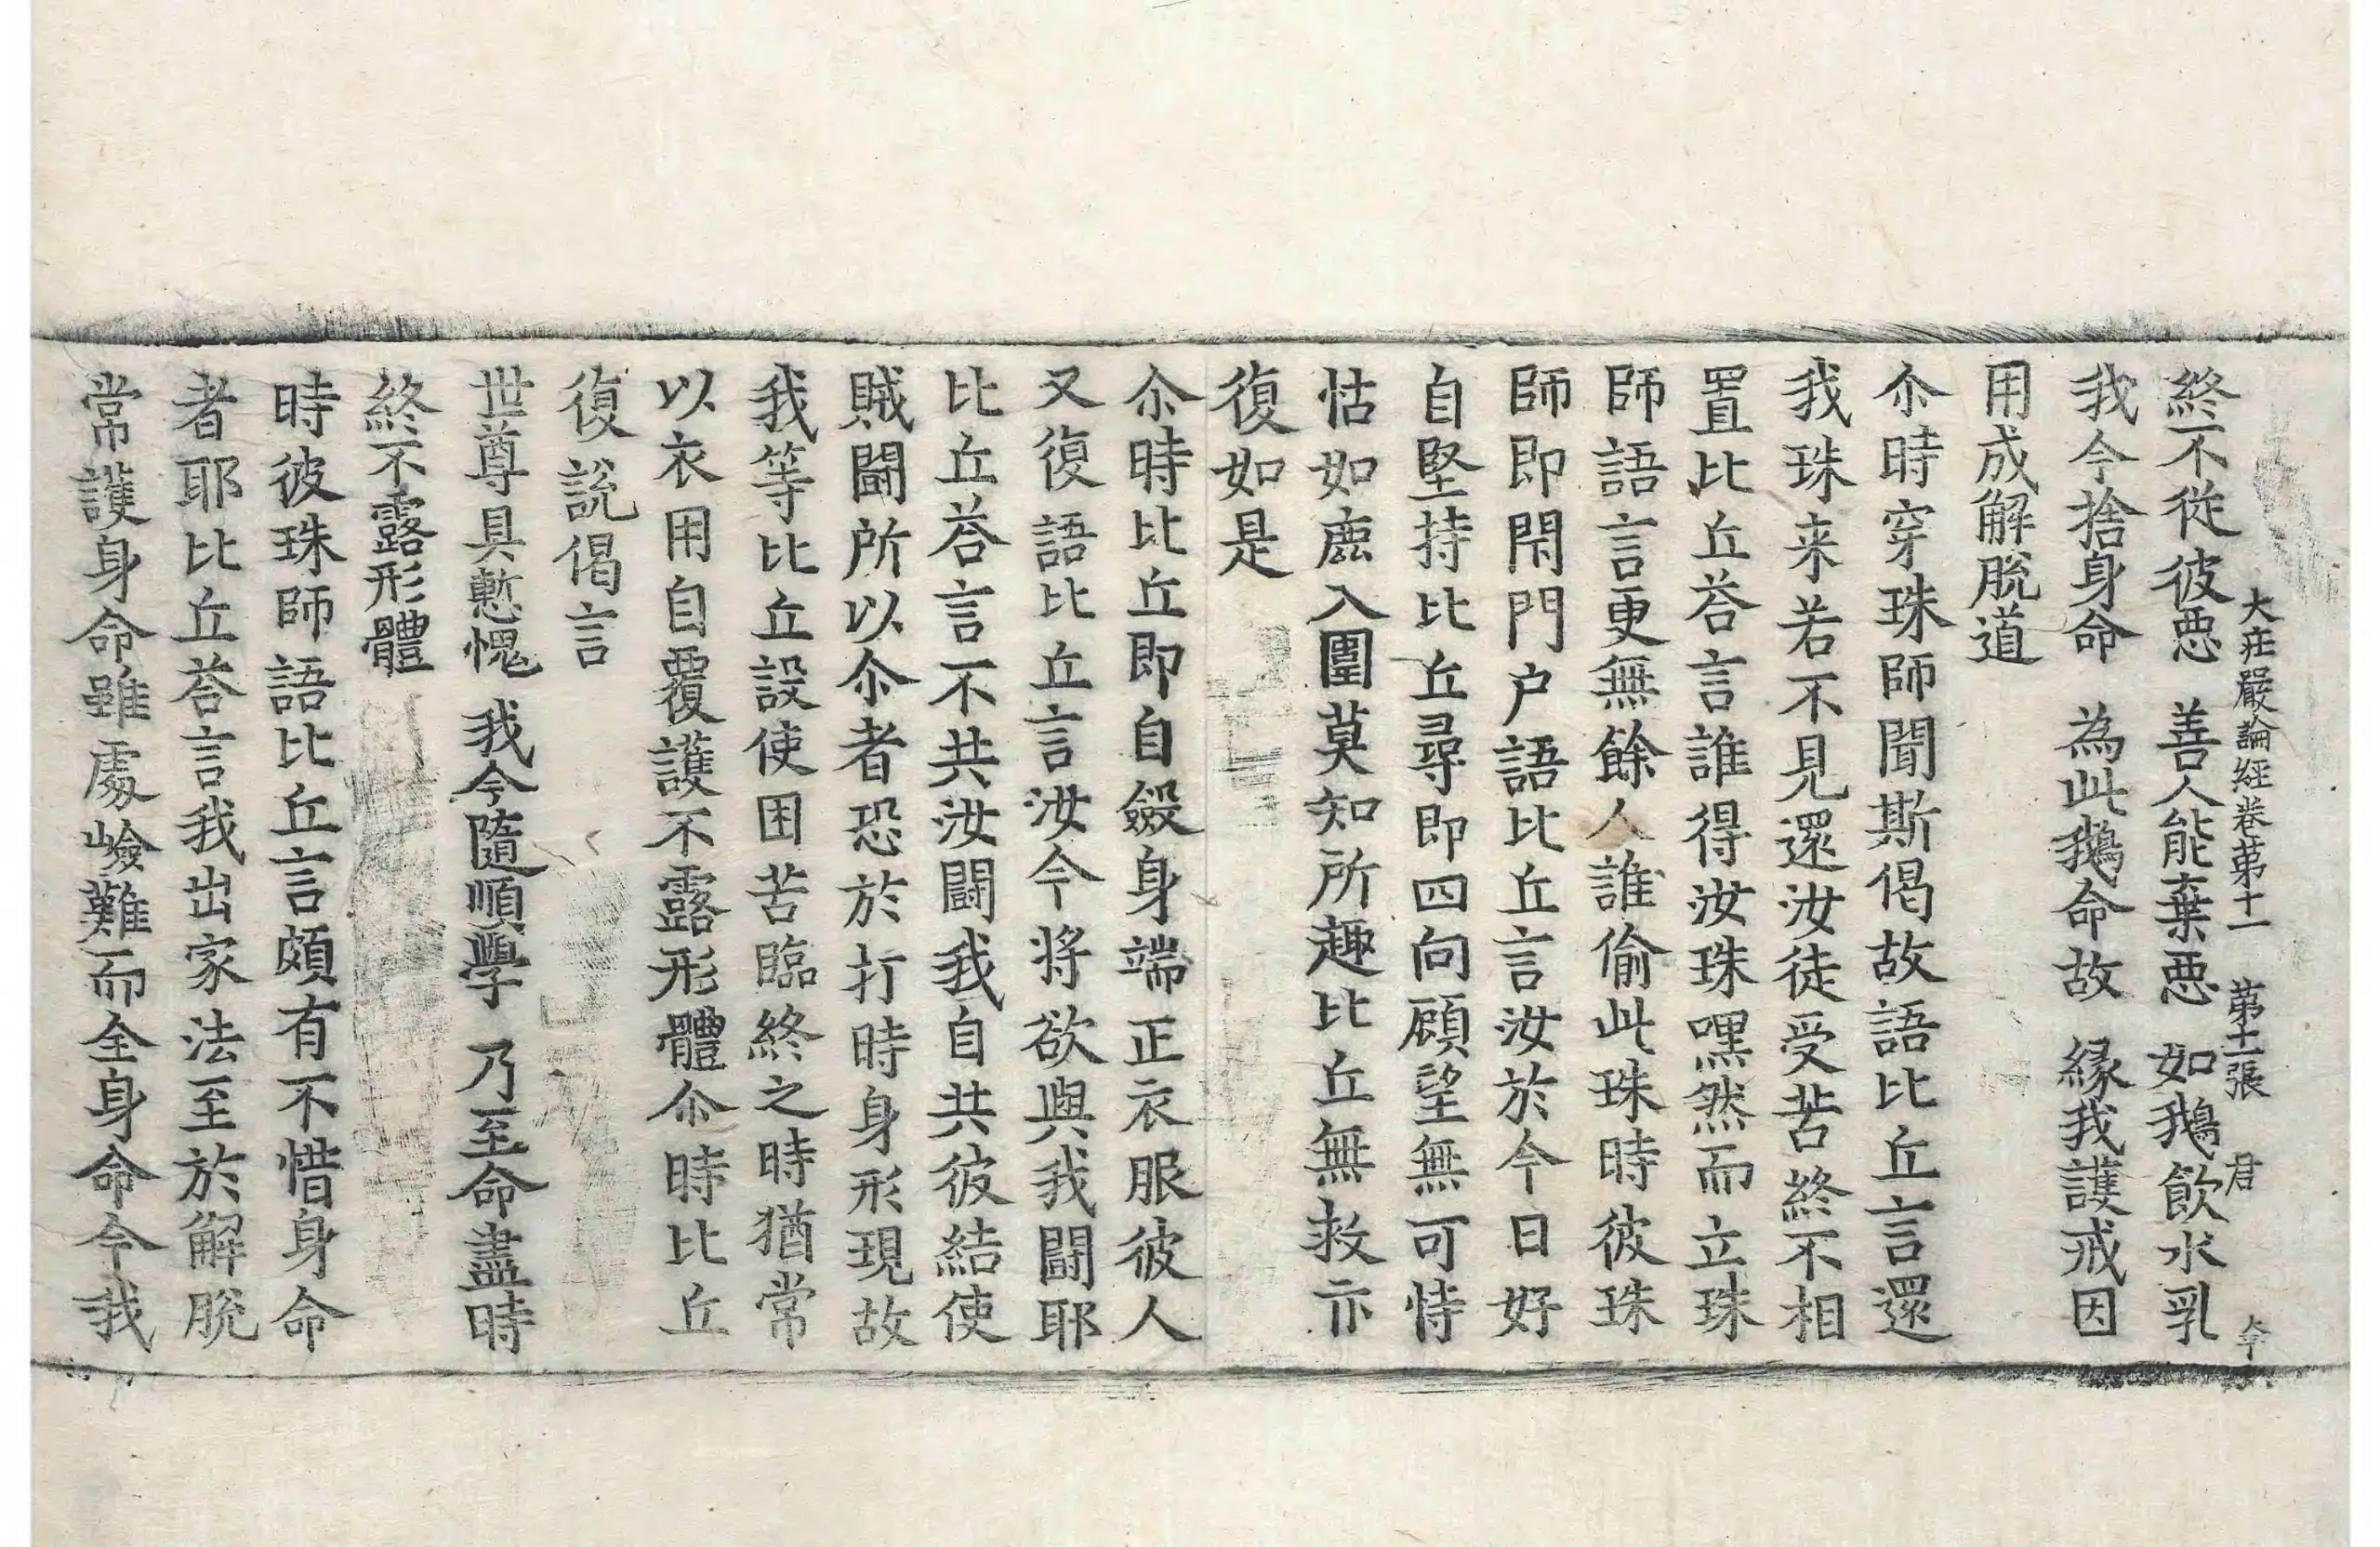 大莊嚴論經卷第十一　第十二張　君
終不從彼惡　善人能棄惡　如鵝飲水乳
我今捨身命　為此鵝命故　緣我護戒因
用成解脫道
尒時穿珠師聞斯偈故語比丘言還
我珠来若不見還汝徒受苦終不相
置比丘荅言誰得汝珠嘿然而立珠
師語言更無餘人誰偷此珠時彼珠
師即閇門户語比丘言汝於今日好
自堅持比丘尋即四向顧望無可恃
怙如鹿入圍莫知所趣比丘無救亦
復如是
尒時比丘即自斂身端正衣服彼人
又復語比丘言汝今將欲與我鬪耶
比丘荅言不共汝鬪我自共彼結使
賊鬪所以尒者恐於打時身形現故
我等比丘設使困苦臨終之時猶常
以衣用自覆護不露形體尒時比丘
復說偈言
世尊具慙愧　我今隨順學　乃至命盡時
終不露形體
時彼珠師語比丘言頗有不惜身命
者耶比丘荅言我出家法至於解脫
常護身命雖處嶮難而全身命今我